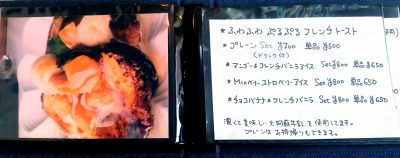 ★ふわふわ ぷるぷる フレンチトースト
★プレーン Set ¥700 単品 ¥500
(ドリンク付)
★マンゴー&フレンチバニラアイス Set ¥800 単品 ¥650
★Mixベリーストロベリーアイス Set ¥800 単品 ¥650
★チョコバナナ&フレンチバニラ Set ¥800 単品 ¥650
濃くて美味しい大阿蘇牛乳を使用してます。
プレーンはお持帰りもできます。